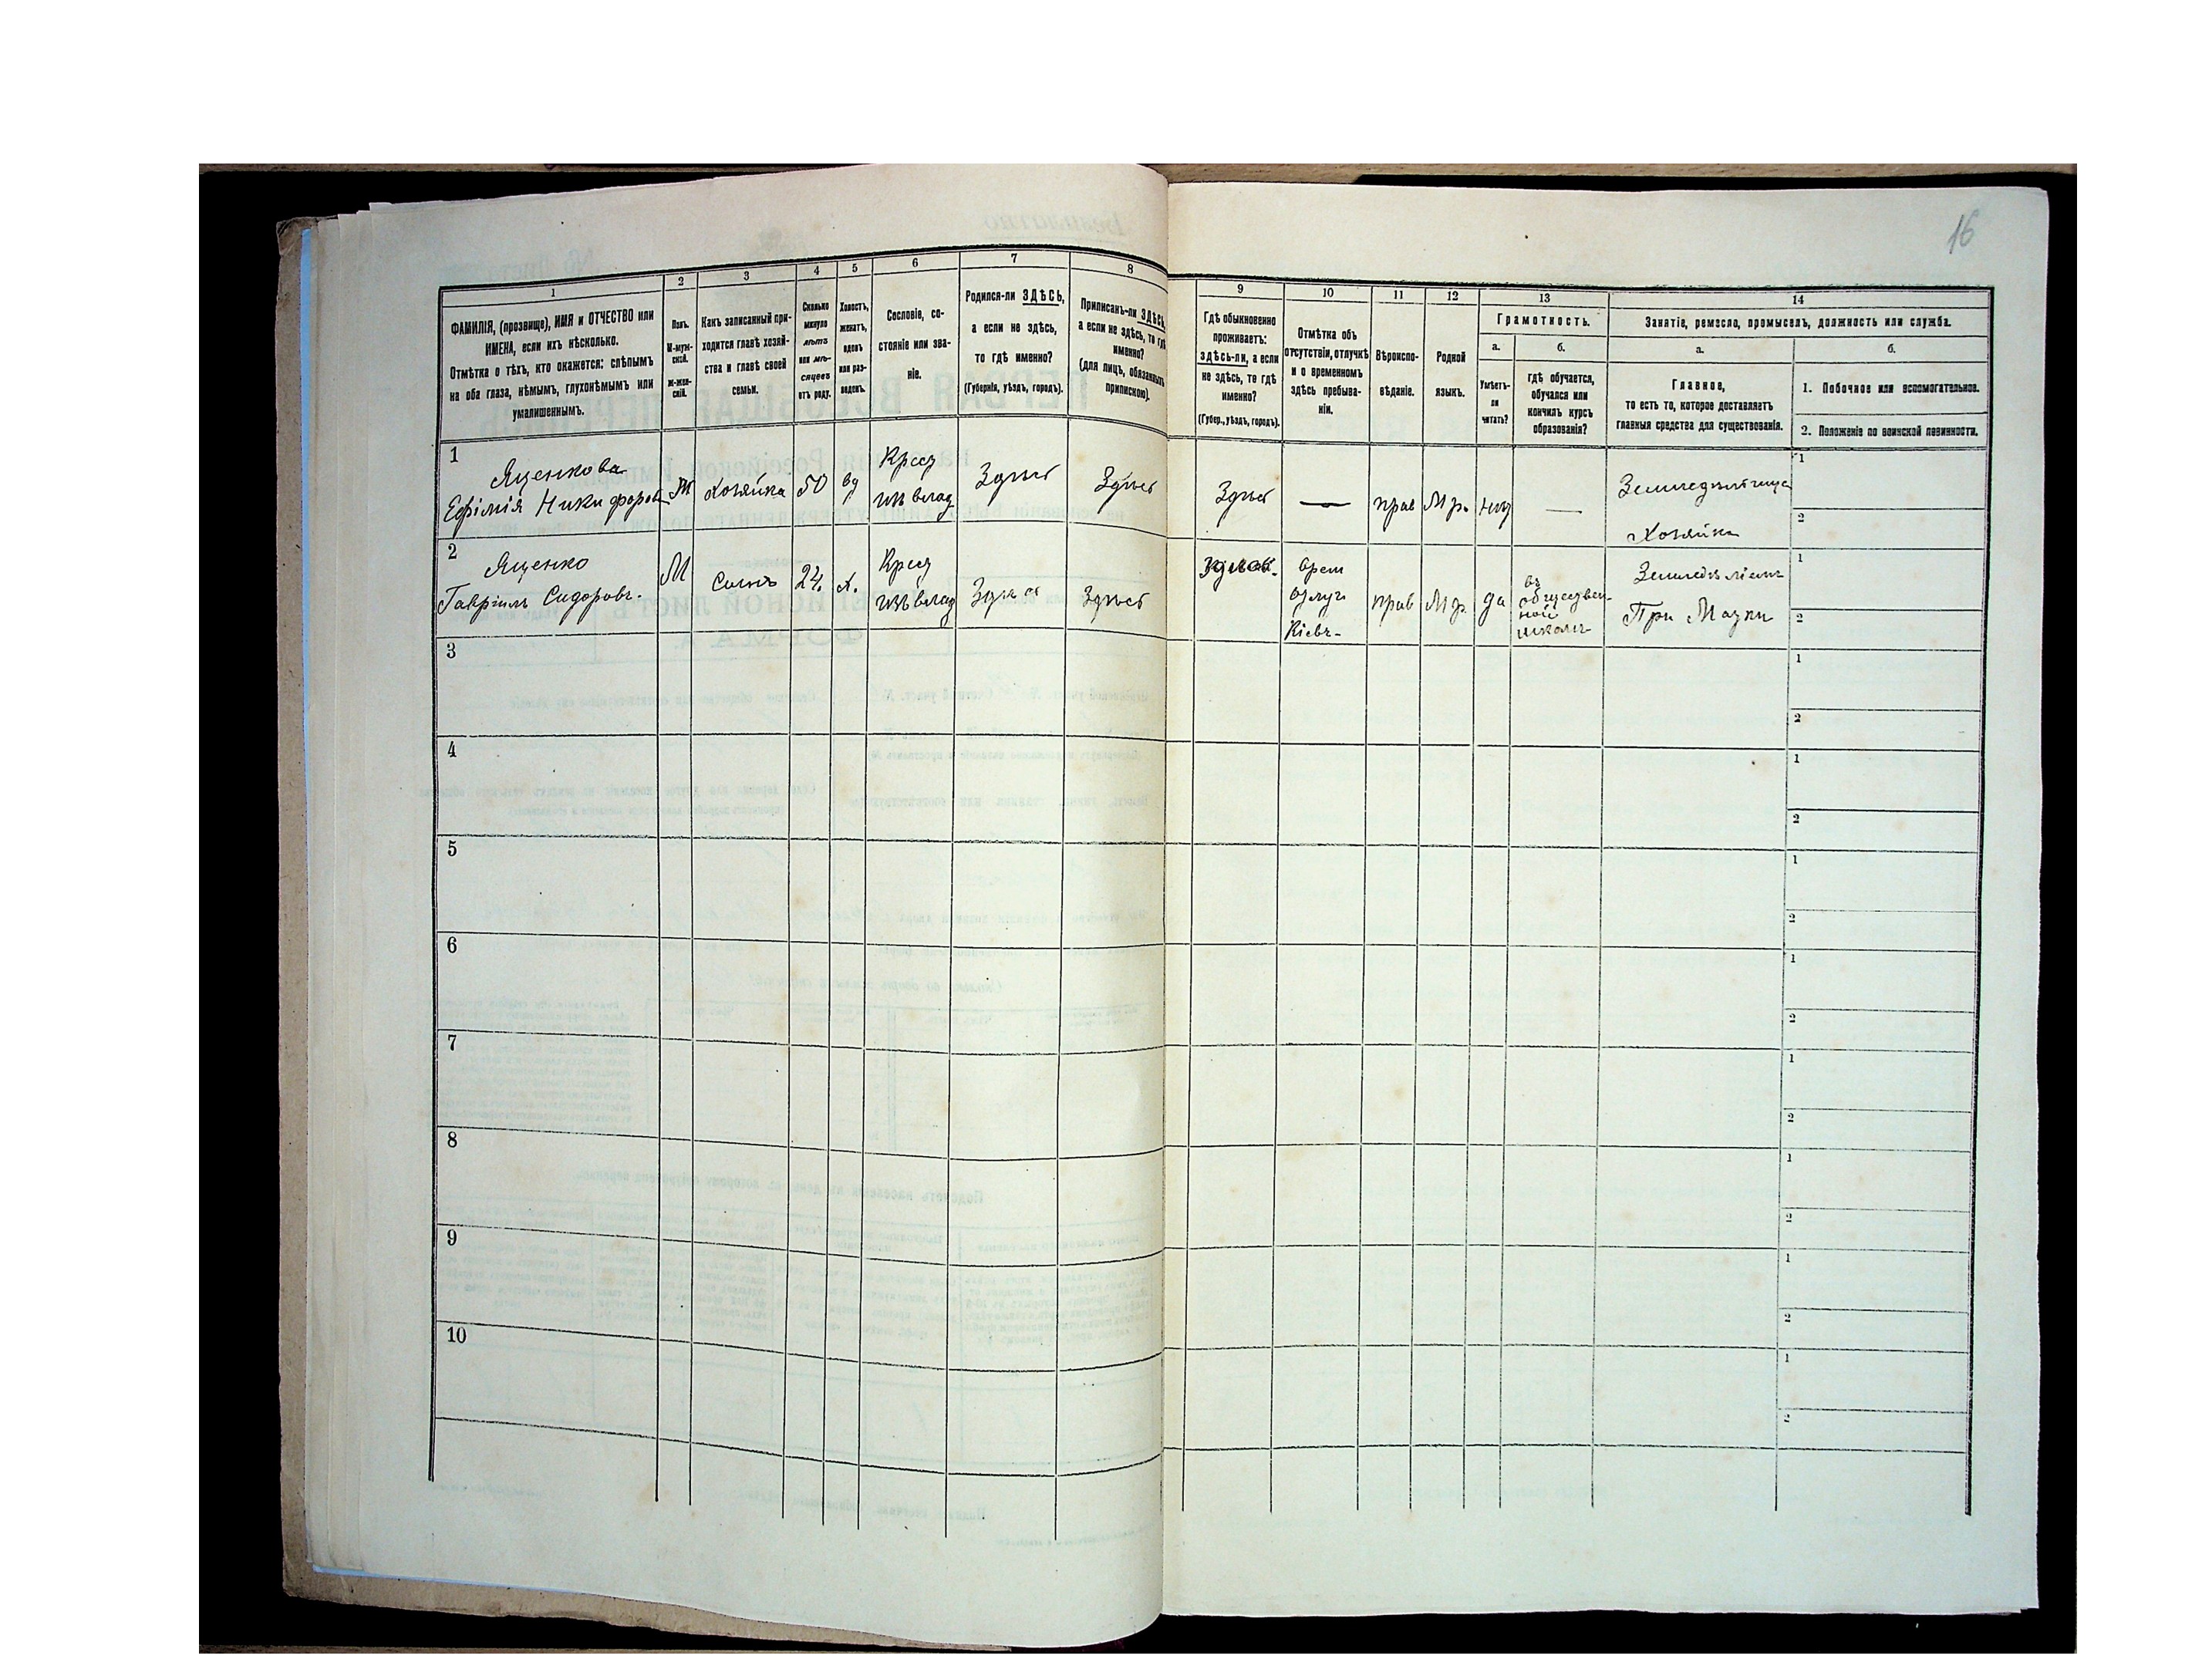 16
1
2
3
4
5
6
7
8
ФАМИЛІЯ, (прозвище), ИМЯ и ОТЧЕСТВО или
ИМЕНА, если ихъ нѣсколько.
Отмѣтка о тѣхъ, кто окажется: слѣпымъ
на оба глаза, нѣмымъ, глухонѣмымъ или
умалишеннымъ.
Полъ.
М-муж-
ской.
Ж-жен-
скій.
Какъ записанный при-
ходится главѣ хозяй-
ства и главѣ своей
семьи.
Сколько
минуло
лѣтъ
или мѣ-
сяцевъ
отъ роду.
Холостъ,
женатъ,
вдовъ
или раз-
веденъ.
Сословіе, со-
стояніе или зва-
ніе.
Родился-ли ЗДѢСЬ,
а если не здѣсь,
то гдѣ именно?
(Губернія, уѣздъ, городъ).
Приписанъ-ли ЗДѢСЬ,
а если не здѣсь, то гдѣ
именно?
(для лицъ, обязанныхъ
припискою).
9
10
11
12
13
14
Гдѣ обыкновенно
проживаетъ:
здѣсь-ли, а если
не здѣсь, то гдѣ
именно?
(Губер., уѣздъ, городъ).
Отмѣтка объ
отсутствіи, отлучкѣ
и о временномъ
здѣсь пребыва-
ніи.
Вѣроиспо-
вѣданіе.
Родной
языкъ.
Грамотность.
а.
б.
Умѣетъ-
ли
читать?
гдѣ обучается,
обучался или
кончилъ курсъ
образованія?
Занятіе, ремесло, промыселъ, должность или служба.
а.
б.
Главное,
то есть то, которое доставляетъ
главныя средства для существованія.
1. Побочное или вспомогательное.
2. Положеніе по воинской повинности.
1
Яценкова
Ефімія Никифоров
Хозяйка
50
вд
Крест
изъ влад
Здѣсь
Здѣсь
Здѣсь
—
прав
Мр.
нѣт
—
Хозяйка
1
2
2
Яценко
Гавріилъ Сидоровъ.
М
Сынъ
24.
х.
Крест
изъ влад
Здѣсь
Здѣсь
врем
отлуч
Кіевъ-
прав
Мр.
да
въ
обществен-
ной
школѣ
При Матки
1
2
3
1
2
4
1
2
5
1
2
6
1
2
7
1
2
8
1
2
9
1
2
10
1
2